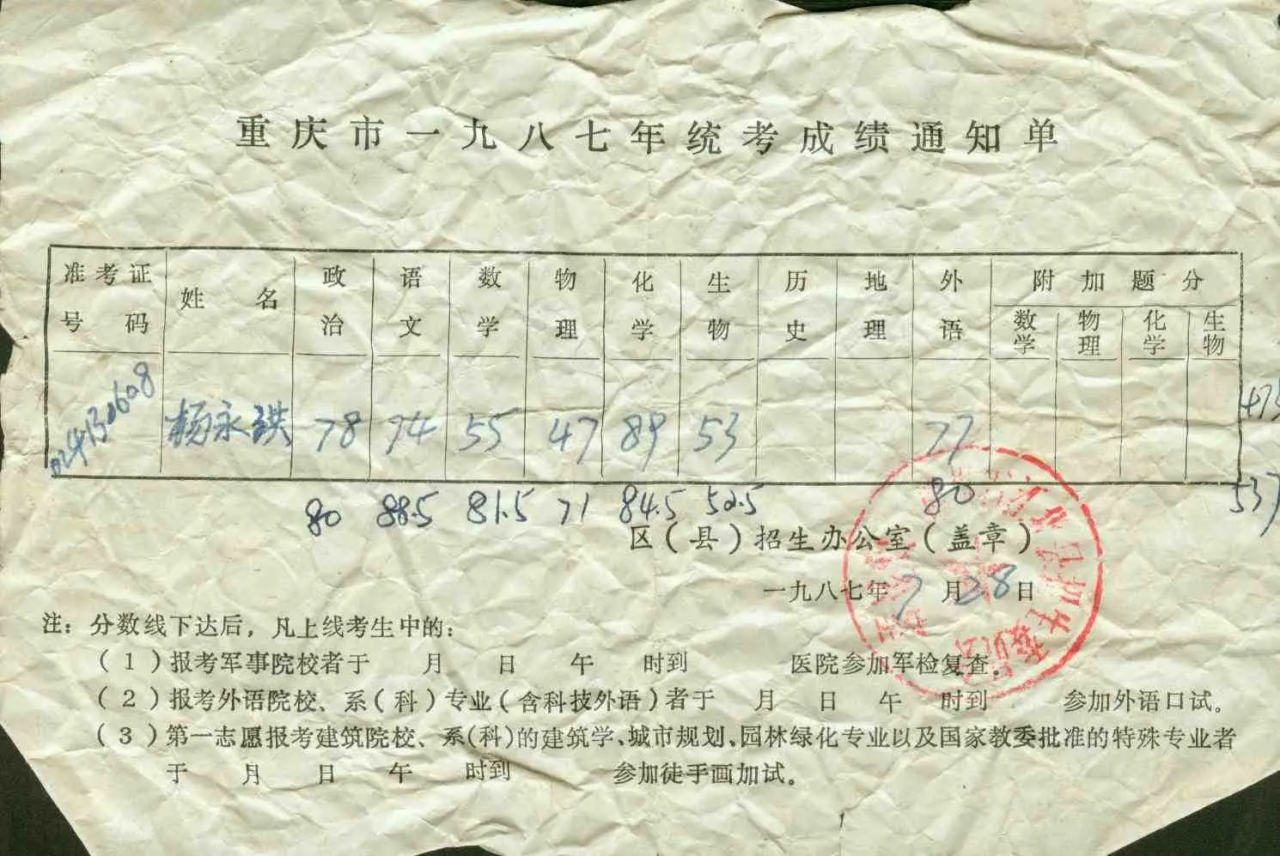 重庆市一九八七年统考成绩通知单
准考证号码 姓名 政治 语文 数学 物理 化学 生物 历史 地理 外语 附加题分
数学 物理 化学 生物
杨永 78 74 55 47 89 53 77 473
80 88.5 81.5 71 84.5 52.5 80 537
区(县)招生办公室(盖章)
一九八七年7月28日
注：分数线下达后，凡上线考生中的：
(1)报考军事院校者于 月 日 午 时到 医院参加军检复查。
(2)报考外语院校、系(科)专业(含科技外语)者于 月 日 午 时到 参加外语口试。
(3)第一志愿报考建筑院校、系(科)的建筑学、城市规划、园林绿化专业以及国家教委批准的特殊专业者
于 月 日 午 时到 参加徒手画加试。